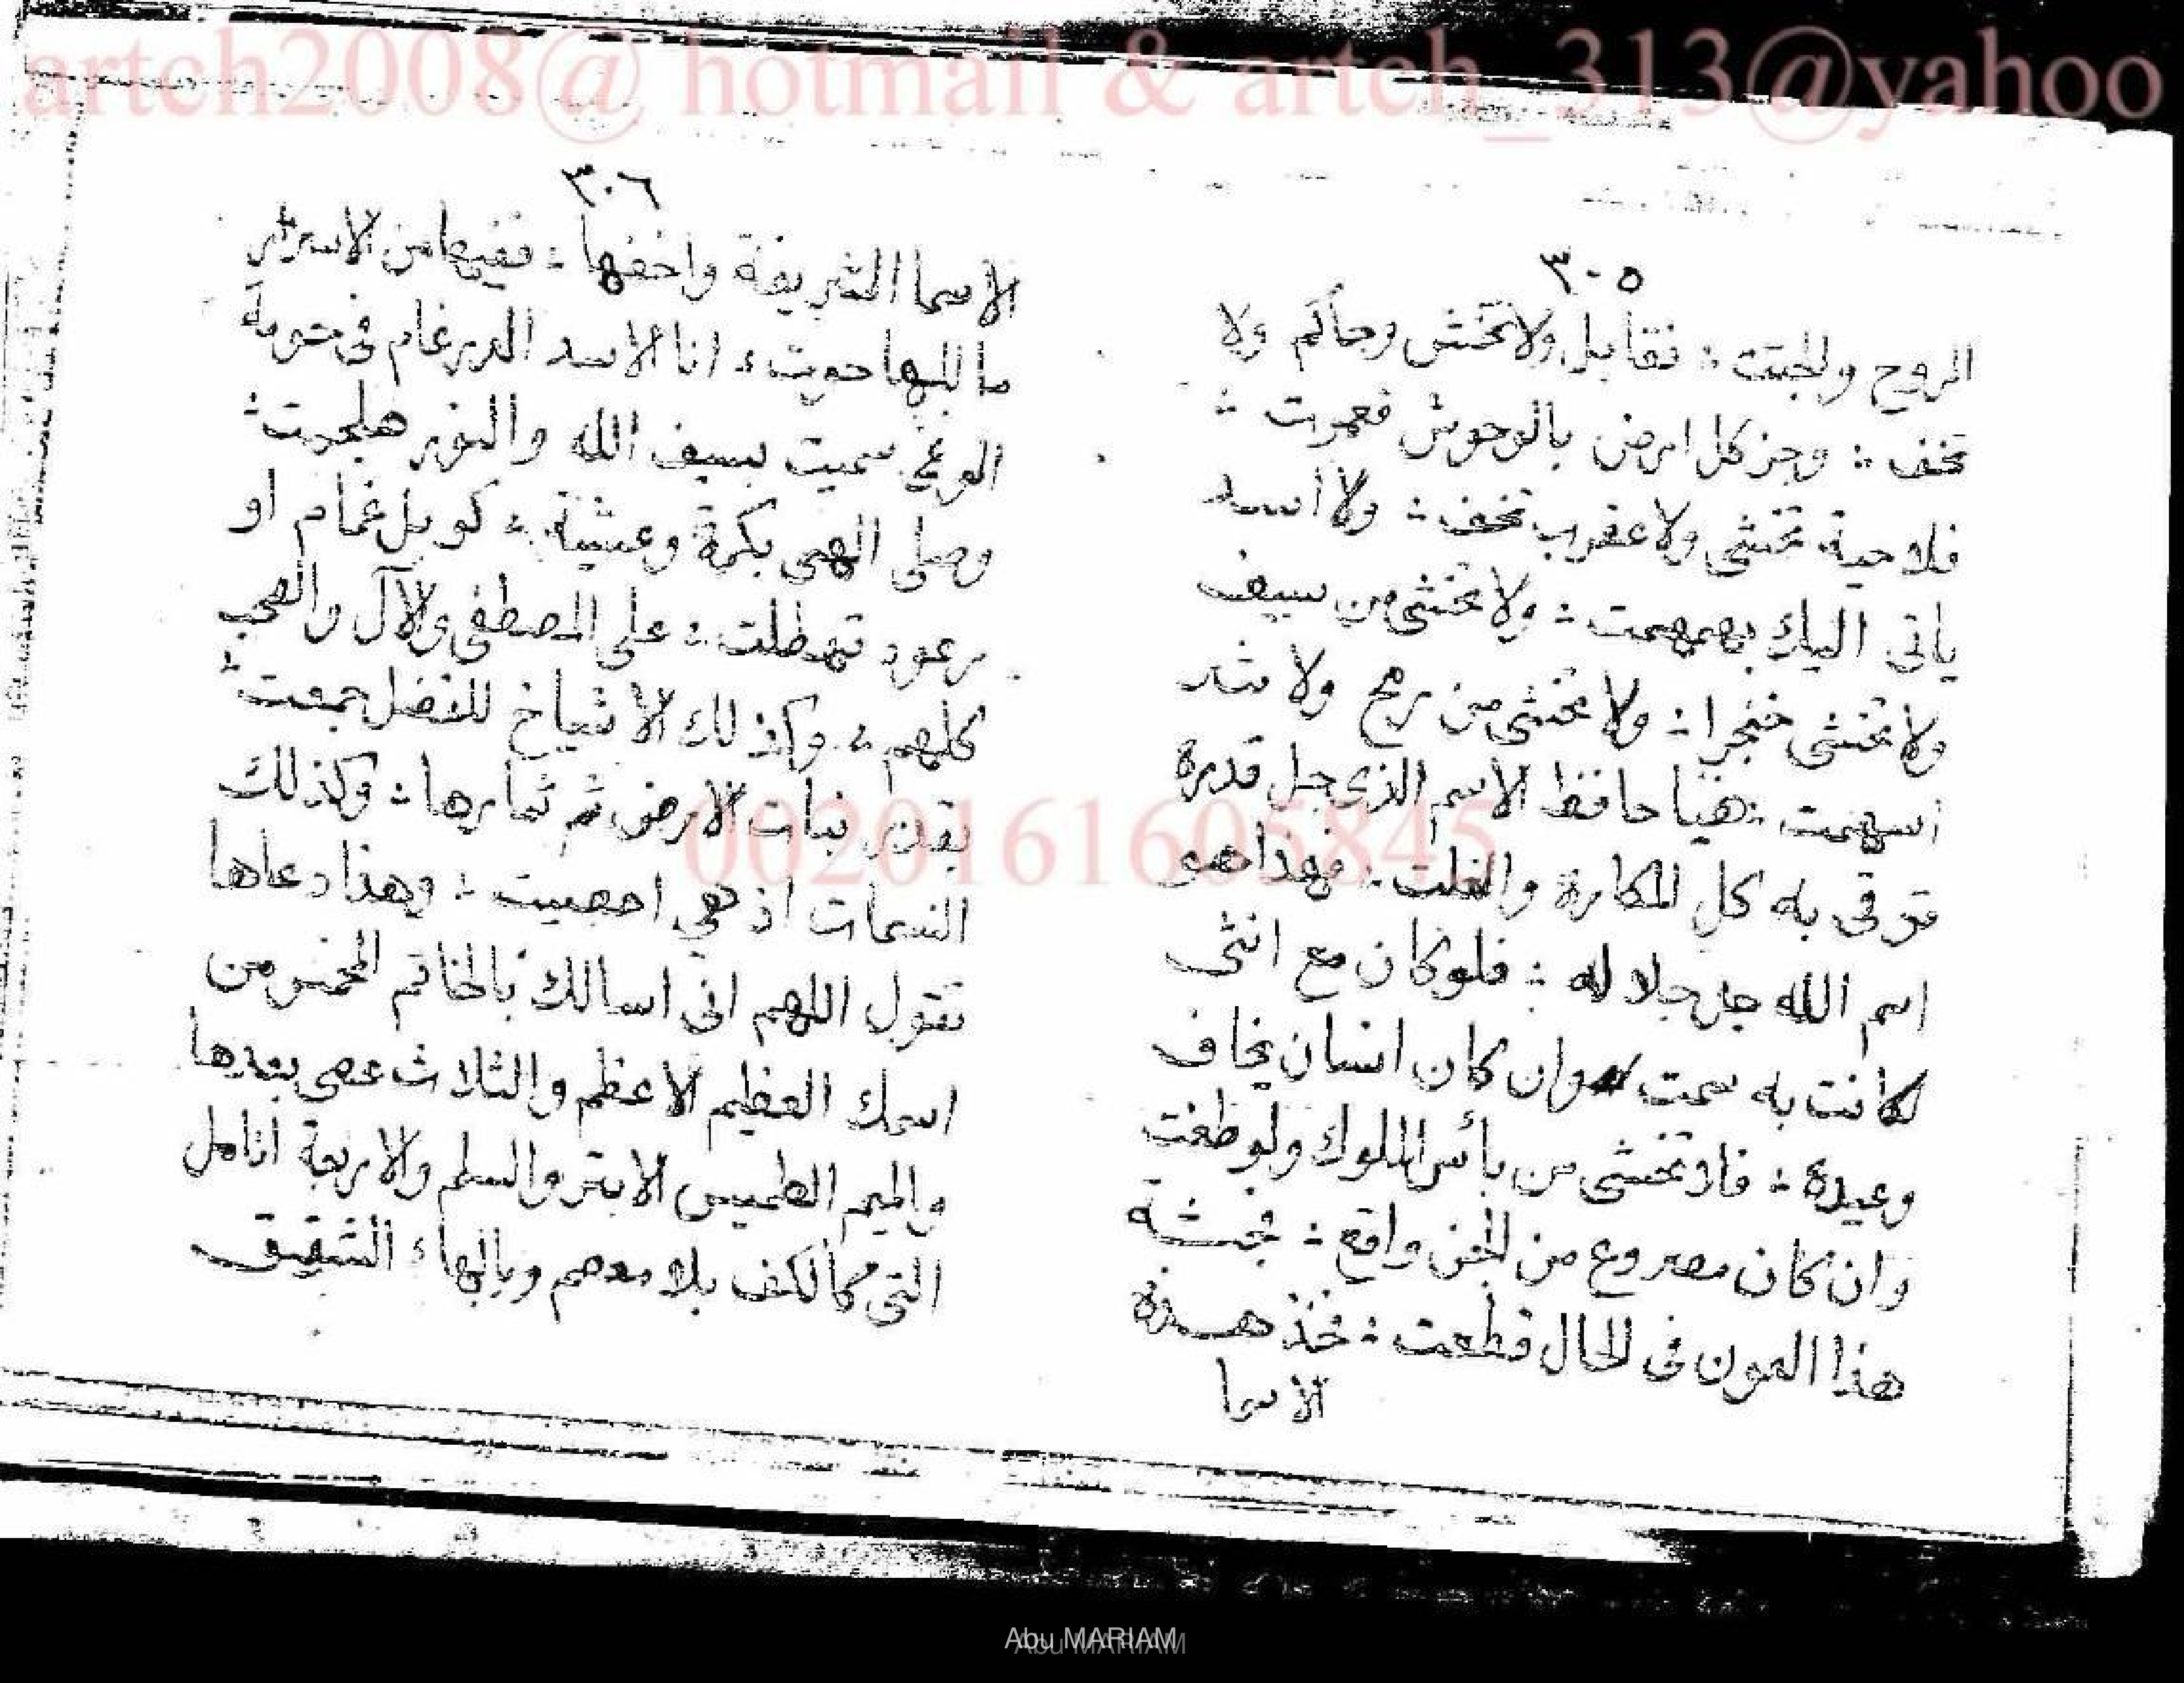 artch2008@ hotmail & artch_313@yahoo
٣٠٥
الروح والجثت : تقابل ولا تخش وحاكم ولا
تخف : وجز كل ارض بالوحوش تعمرت :
فلا حية تخشى ولا عقرب تخف : ولا اسد
ياتى اليك بهمهمت : ولا تخشى من سيف
ولا تخشى خنجرا : ولا تخشى من رمح ولا شر
اسهمت : فيا حافظ الاسم الذى جل قدره
توقى به كل المكاره والفلت : فهذا هو
اسم الله جل جلاله : فلو كان مع انثى
لكانت به سمت وان كان انسان يخاف
وعيده : فلا تخشى من بأس الملوك ولو طغت
وان كان مصروع من الجن واقع :
هذا العون فى الحال قطعت : فخذ هذه
الاسما
٣٠٦
الاسما الشريفة واخفها : ففيها من الاسرار
ما اليها حويت : انا الاسد الدرغام فى حومة
الوغى سميت بسيف الله والنور
وصلى الهى بكرة وعشية : كوبل غمام او
رعود تهطلت : على المصطفى والآل والصحب
كلهم : وكذلك الاشياخ للفضل جمعت :
بقدر نبات الارض ثم ثمارها : وكذلك
النسمات اذ هي احصيت : وهذا دعاها
تقول اللهم انى اسالك بالخاتم المخمس من
اسمك العظيم الاعظم والثلاث عصى بعدها
والميم الطميس الابتر والسلم والاربعة انامل
التى كالكف بلا معصم وبالهاء الشقيق
0020161605845
Abu MARIAM